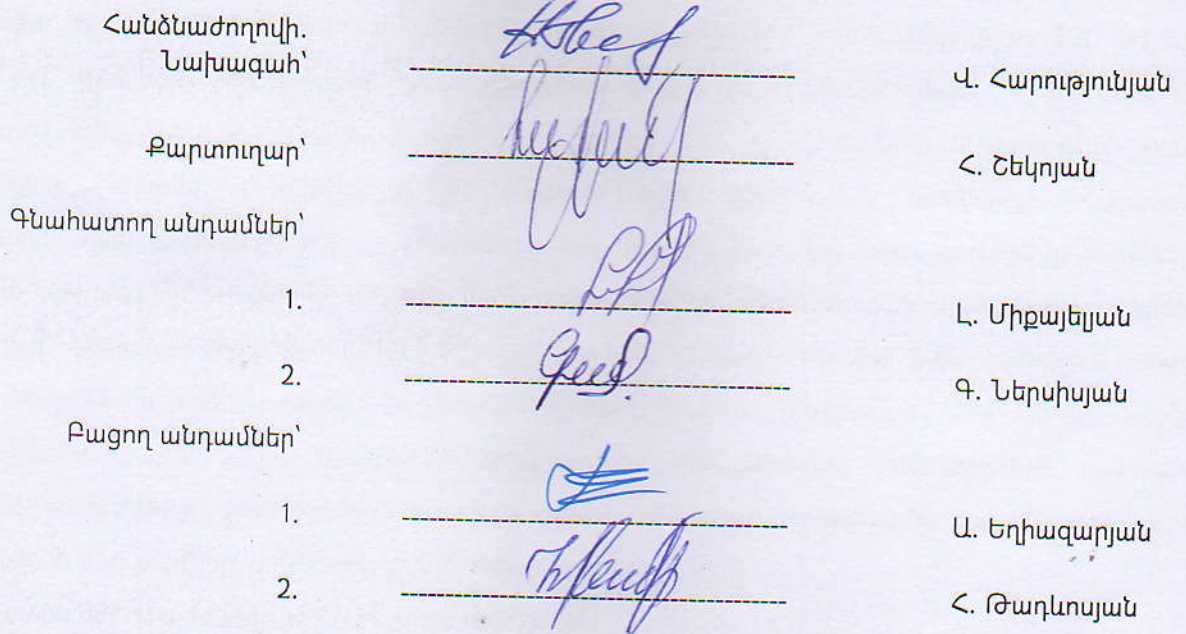 Հանձնաժողովի.
Նախագահ՝ Վ. Հարությունյան
Քարտուղար՝ Հ. Շեկոյան
Գնահատող անդամներ՝
1. Լ. Միքայելյան
2. Գ. Ներսիսյան
Բացող անդամներ՝
1. Ա. Եղիազարյան
2. Հ. Թադևոսյան